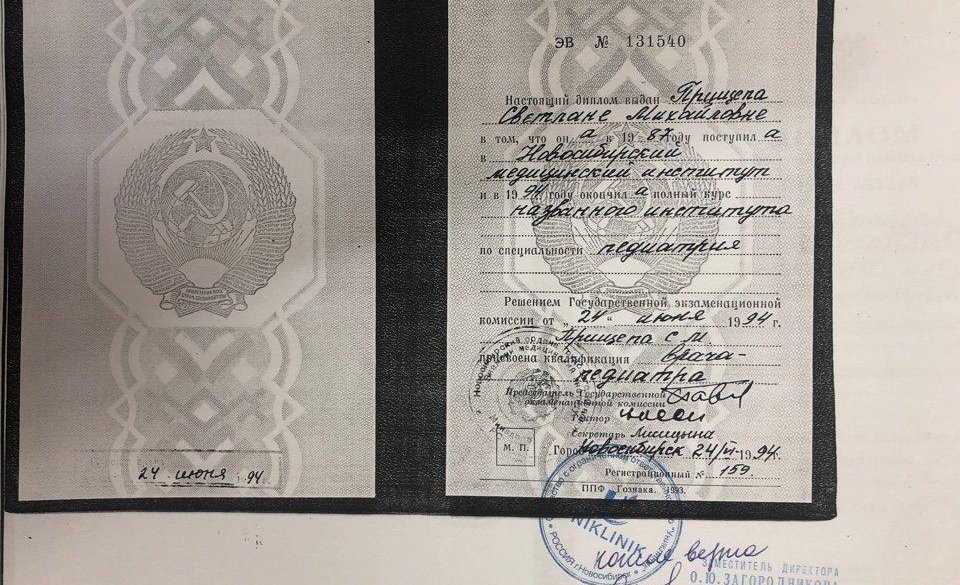 24 июня 94
ЭВ № 131540
Настоящий диплом выдан Прищепа
Светлане Михайловне
в том, что он а в 19 87 году поступил а
в Новосибирский
медицинский институт
и в 19 94 году окончил а полный курс
названного института
по специальности педиатрия
Решением Государственной экзаменационной
комиссии от „ 24 “ июня 19 94 г.
Прищепа С М
присвоена квалификация врача-
педиатра
Председатель Государственной
экзаменационной комиссии
Ректор
Секретарь Лисицына
М. П.
Город Новосибирск 24/VI 19 94 г.
Регистрационный № 159
ППФ Гознака. 1993.
NIKLINIK
РОССИЯ г.Новосибирск
копия верна
ЗАМЕСТИТЕЛЬ ДИРЕКТОРА
О.Ю.ЗАГОРОДНИКОВА